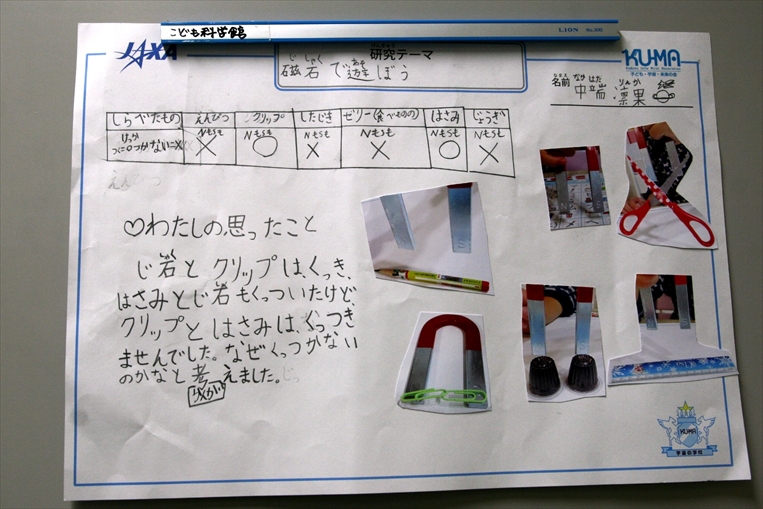 こども科学館
LION No.300
JAXA
研究テーマ
けんきゅう
じ しゃく あそ
磁石で遊ぼう
KU-MA
子ども・宇宙・未来の会
なまえ なか はた りん か
名前 中端 凛果
しらべたもの えんぴつ クリップ したじき ゼリー(食べもの) はさみ じょうぎ
けっか NもSも NもSも NもSも NもSも NもSも NもSも
つく=○つかない=× × ○ × × ○ ×
えんぴつ
♡わたしの思ったこと
じ石とクリップは、くっつき、
はさみとじ石もくっついたけど、
クリップとはさみは、くっつき
ませんでした。なぜくっつかない
のかなと考えました。
KU-MA
宇宙の学校